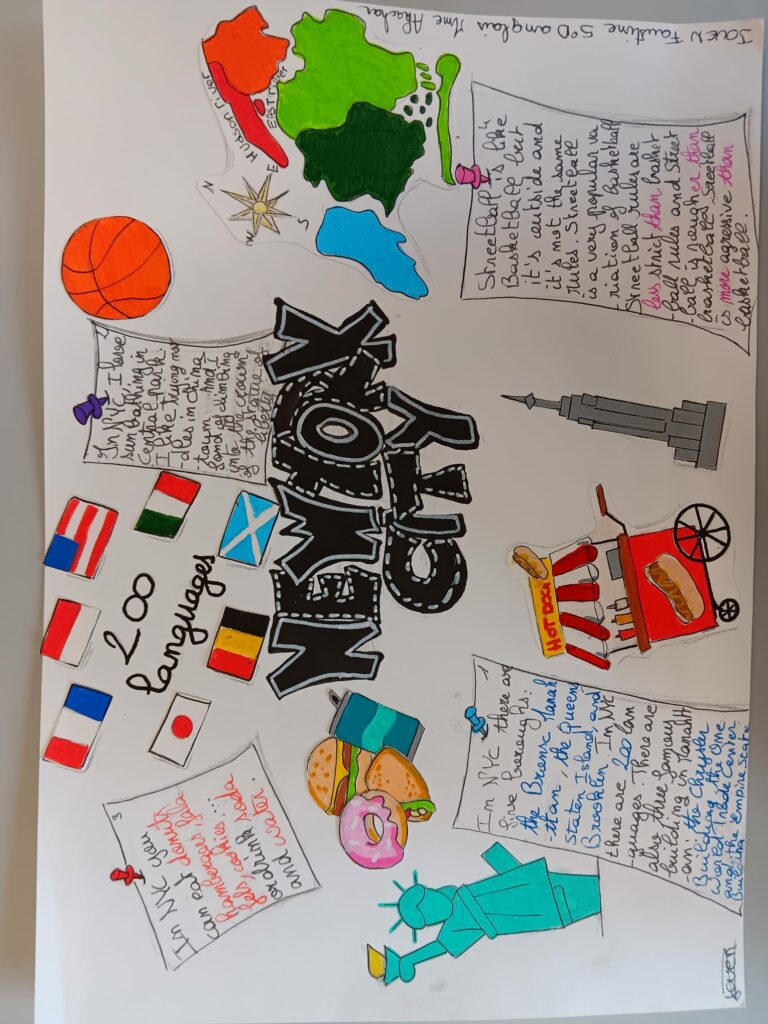 Faustine 5°D anglais Mme
Hudson river
EAST river
N
E
S
NEW YORK
CITY
200
languages
HOT DOGS
In NYC you
can eat donuts
hamburgers, fala
fels, cookies...
or drink soda
and water.
In NYC, I love
sun bathing in
Central park.
I like trying noo
dles in china
town and I
fond of climbing
into the crown
of the statue of
liberty
1
In NYC there are
five boroughs:
the Bronxe, Manah
-than, the Queens
Staten Island, and
Brooklen. In NYC
there are 200 lan
guages. There are
also three famous
building in Manahtt
-an: the Chrysler
Building, the One
World Trade Center
and the Empire State
Building.
Streetball is like
Basketball but
it's outside and
it's not the same
rules. Streetball
is a very popular va
-riation of basketball
Streetball rules are
less strict than basket
ball rules and Street
-ball is rougher than
basketball. Streetball
is more agressive than
basketball.